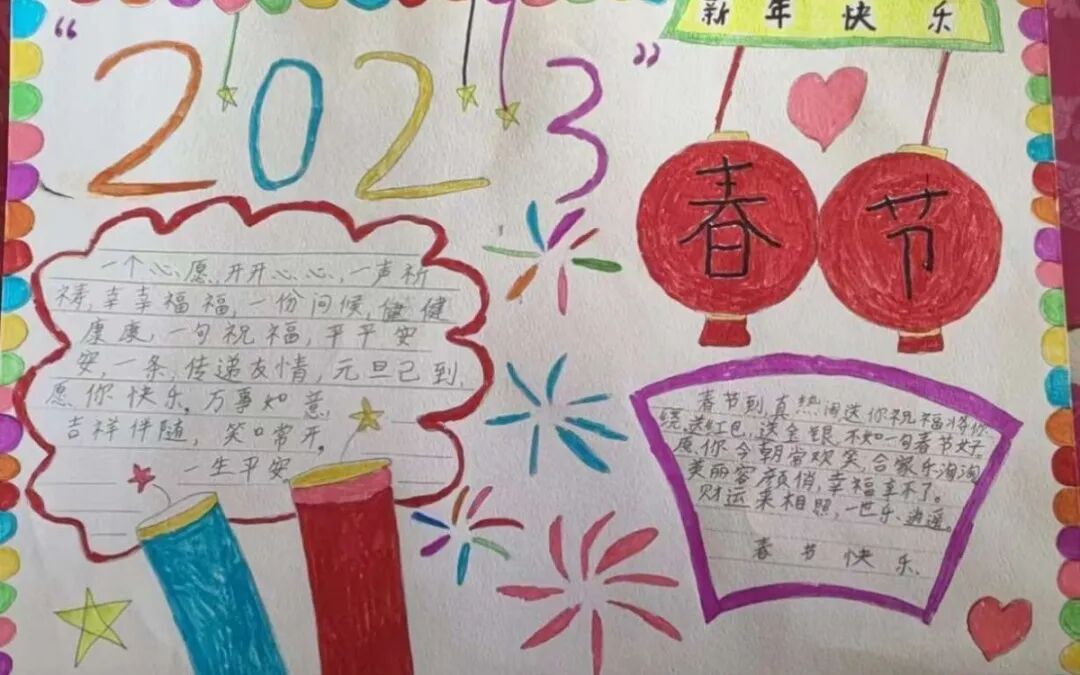 “2023”
新年快乐
春节
一个心愿,开开心心,一声祈
祷,幸幸福福,一份问候,健健
康康,一句祝福,平平安
安,一条,传递友情,元旦已到,
愿你快乐。万事如意
吉祥伴随,笑口常开。
一生平安
春节到,真热闹送你祝福将你
绕,送红包,送金银不如一句春节好。
愿你今朝常欢笑,合家乐淘淘
美丽容颜俏,幸福享不了。
财运来相照,一世乐逍遥。
春节快乐